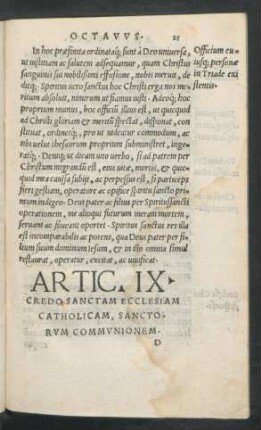 OCTAVVS. 25
In hoc præfinita ordinataq; sunt à Deo universa,
ut iustitiam ac salutem adsequamur, quam Christus
sanguinis sui nobilissimi effusione, nobis meruit, de
Spiritus vero sanctus hoc Christi erga nos me-
ritum absolut, nimirum ut fiamus iusti. Adeoq; hoc
proprium munus, hoc officiũ illius est, ut quicquid
ad Christi gloriam & meritũ spectat, disponat, con
stituat, ordinetq; pro ut videatur commodum, ac
nobis velut thesaurum proprium subministret, inge-
ratq;. Deniq; ut dicam uno verbo, si ad patrem per
Christum migrandũ est, eius vita, mortis, & quic-
quid mea causa subijt, ac perpessus est, si particeps
fieri gestiam, operatore ac opifice spiritu sancto pri
mum indigeo. Deus pater ac filius per Spiritussancti
operationem, me alioqui futurum meram mortem,
servant ac fovent
est incomparabilis ac potens, qua Deus pater per fi-
lium suum dominum Iesum, & in illo omnia simul
restaurat, operatur, excitat, ac vivificat.
Officium cu-
iusq; personæ
in Triade exi
stentis.
ARTIC. IX.
CREDO SANCTAM ECCLESIAM
CATHOLICAM, SANCTO-
RVM COMMVNIONEM.
D